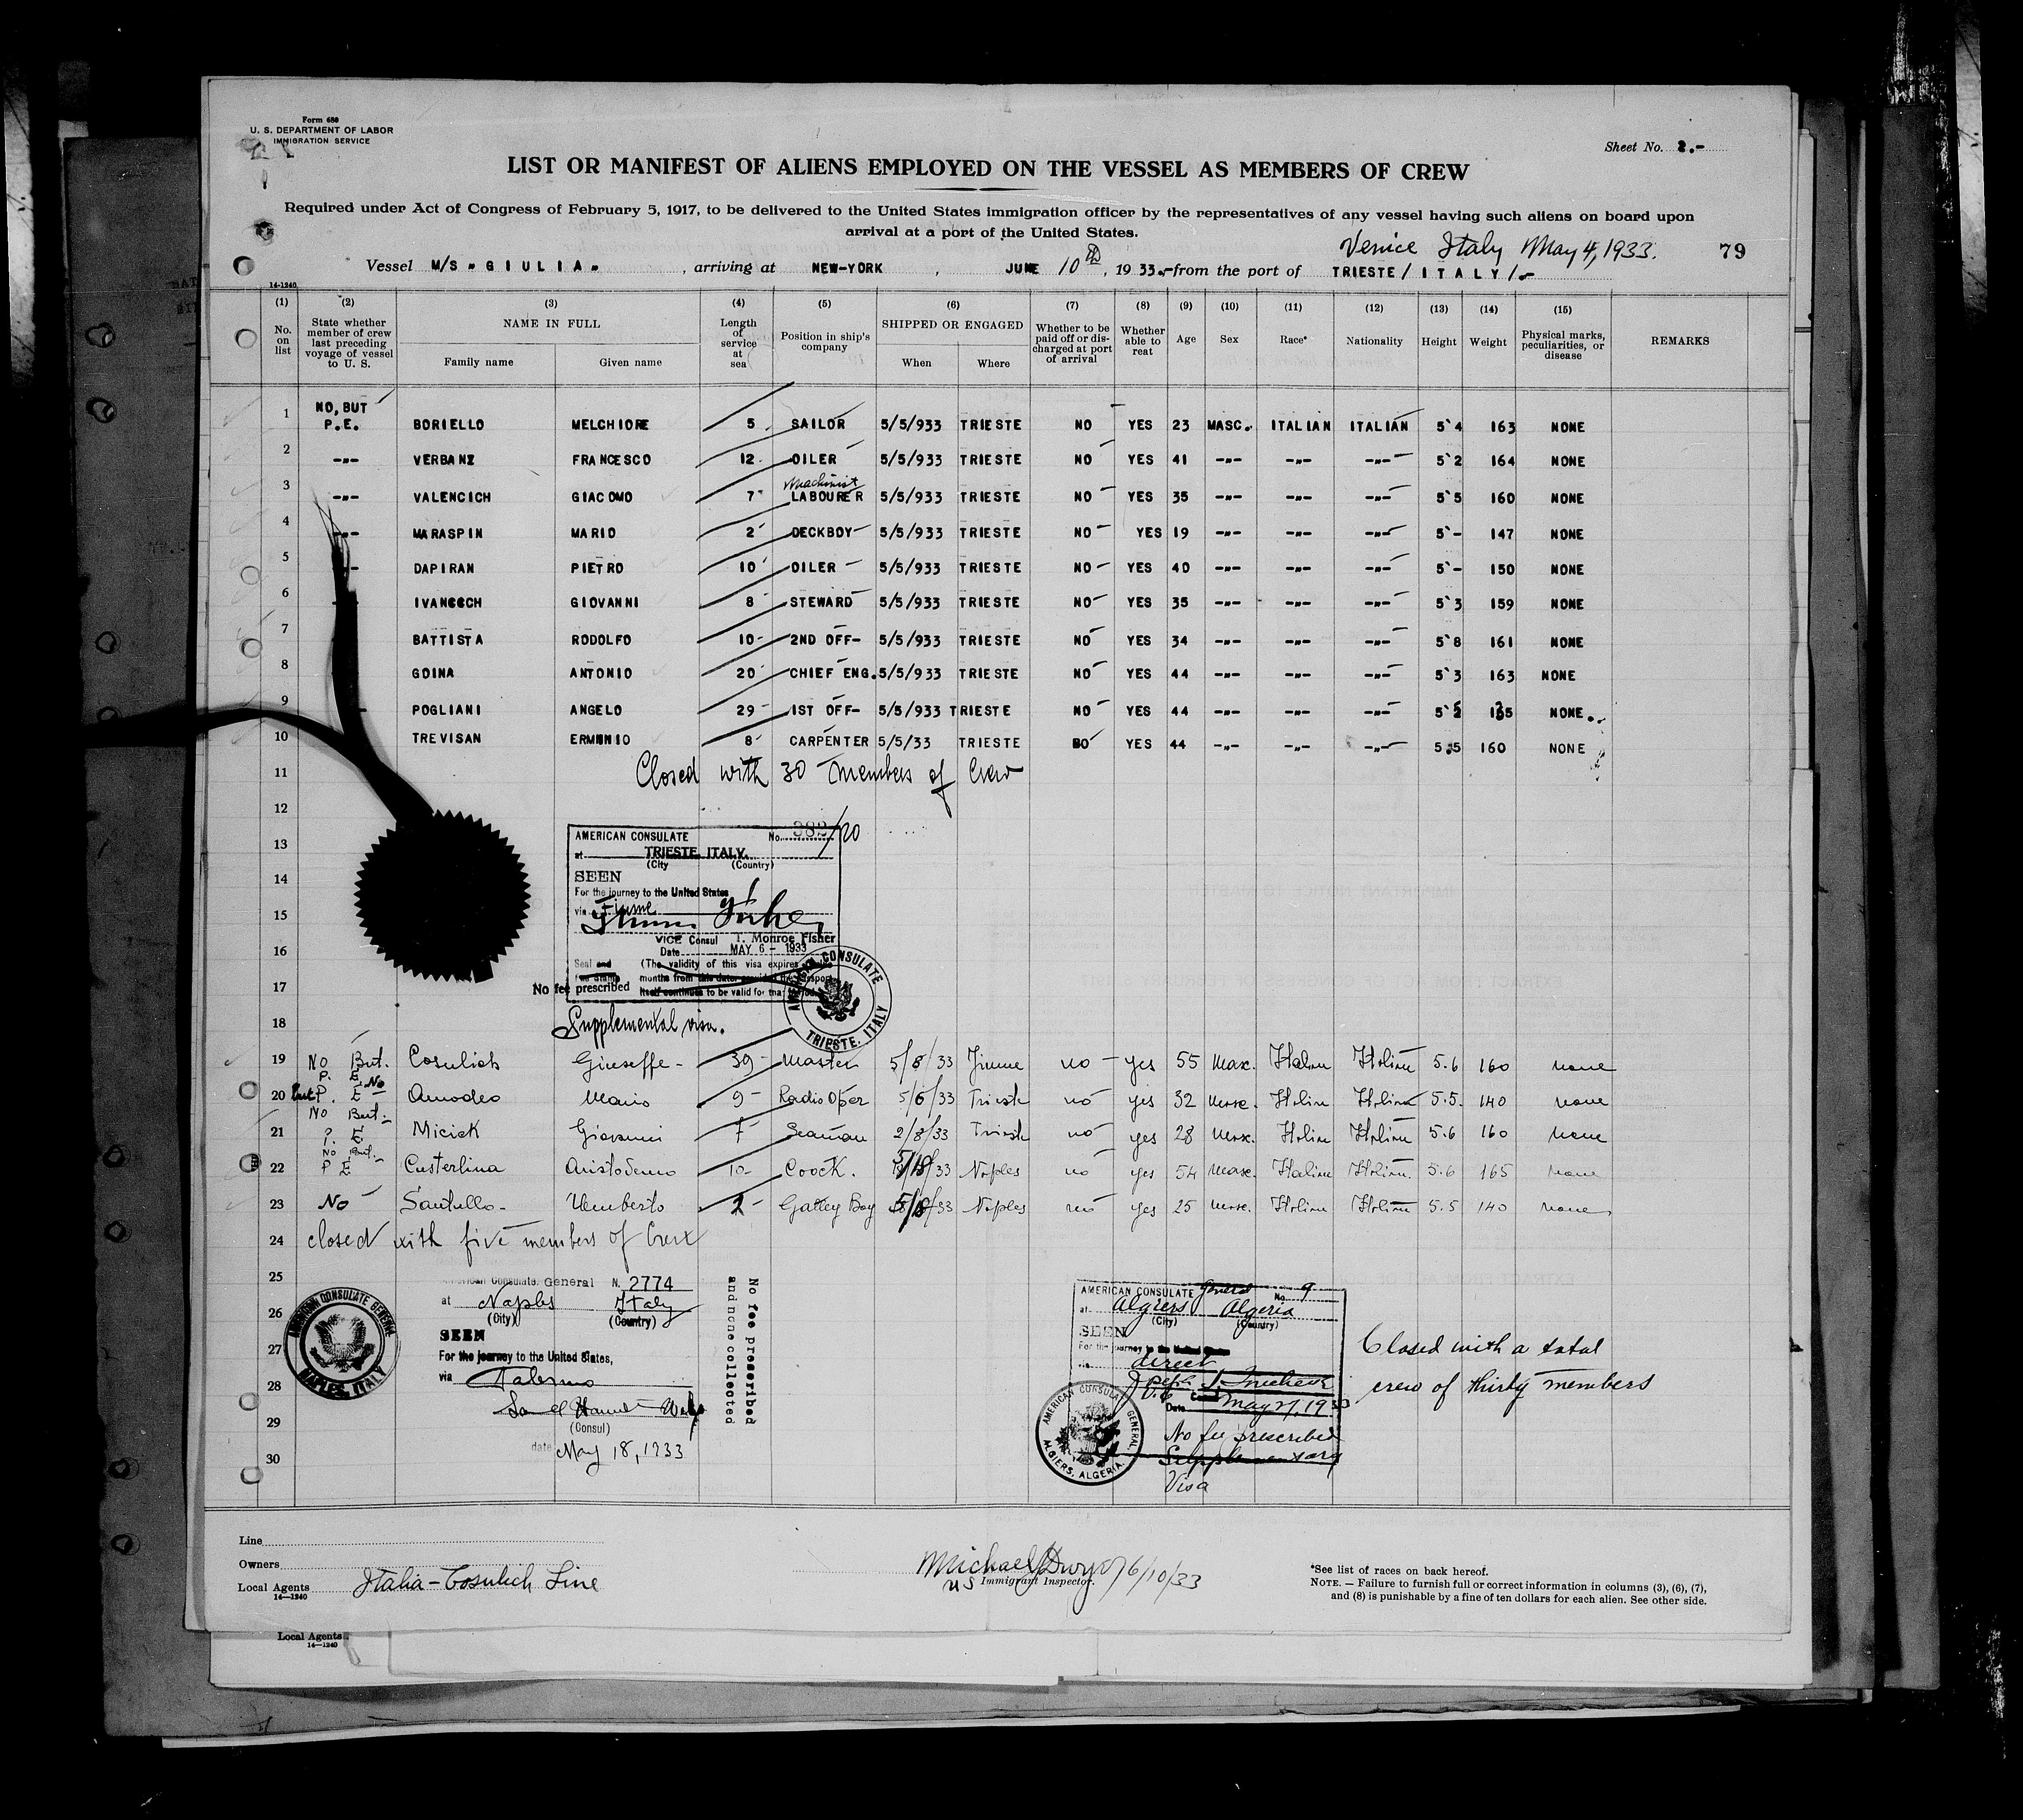 Form 680
U. S. DEPARTMENT OF LABOR
IMMIGRATION SERVICE
Sheet No. 2.-
LIST OR MANIFEST OF ALIENS EMPLOYED ON THE VESSEL AS MEMBERS OF CREW
Required under Act of Congress of February 5, 1917, to be delivered to the United States immigration officer by the representatives of any vessel having such aliens on board upon
arrival at a port of the United States.
Venice Italy May 4, 1933. 79
Vessel M/S "GIULIA" , arriving at NEW-YORK , JUNE 10th , 1933.- from the port of TRIESTE/ITALY/.-
14-1240
(1) (2) (3) (4) (5) (6) (7) (8) (9) (10) (11) (12) (13) (14) (15)
No. on list State whether member of crew last preceding voyage of vessel to U. S. NAME IN FULL Family name Given name Length of service at sea Position in ship's company SHIPPED OR ENGAGED When Where Whether to be paid off or discharged at port of arrival Whether able to reat Age Sex Race* Nationality Height Weight Physical marks, peculiarities, or disease REMARKS
1 NO, BUT P.E. BORIELLO MELCHIORE 5 SAILOR 5/5/933 TRIESTE NO YES 23 MASC. ITALIAN ITALIAN 5`4 163 NONE
2 -"- VERBANZ FRANCESCO 12 OILER 5/5/933 TRIESTE NO YES 41 -"- -"- -"- 5`2 164 NONE
3 -"- VALENCICH GIACOMO 7 Machinist LABOURER 5/5/933 TRIESTE NO YES 35 -"- -"- -"- 5`5 160 NONE
4 -"- MARASPIN MARIO 2 DECKBOY 5/5/933 TRIESTE NO YES 19 -"- -"- -"- 5`- 147 NONE
5 DAPIRAN PIETRO 10 OILER 5/5/933 TRIESTE NO YES 40 -"- -"- -"- 5`- 150 NONE
6 GIOVANNI 8 STEWARD 5/5/933 TRIESTE NO YES 35 -"- -"- -"- 5`3 159 NONE
7 BATTISTA RODOLFO 10 2ND OFF- 5/5/933 TRIESTE NO YES 34 -"- -"- -"- 5`8 161 NONE
8 GOINA ANTONIO 20 CHIEF ENG. 5/5/933 TRIESTE NO YES 44 -"- -"- -"- 5`3 163 NONE
9 POGLIANI ANGELO 29 1ST OFF- 5/5/933 TRIESTE NO YES 44 -"- -"- -"- NONE.
10 TREVISAN ERMINIO 8 CARPENTER 5/5/33 TRIESTE NO YES 44 -"- -"- -"- 5.5 160 NONE
11 Closed with 30 members of Crew
12
13 AMERICAN CONSULATE No. 382/20
at TRIESTE, ITALY.
(City (Country)
14 SEEN
For the journey to the United States
15 via Fiume
VICE Consul T. Monroe Fisher
16 Date MAY 6 - 1933
Seal and (The validity of this visa expires
months from this date provided the passport
17 No fee prescribed itself continues to be valid for that period
AMERICAN CONSULATE TRIESTE, ITALY
18 Supplemental visa.
19 No But. P. E. Cosulich Giuseppe 39 Master 5/8/33 Fiume no yes 55 Masc. Italian Italian 5.6 160 none
20 No but P. E. Amodeo Mario 9 Radio Oper 5/6/33 Trieste no yes 32 Masc. Italian Italian 5.5. 140 none
21 No But P. E. Micick Giovanni 7 Seaman 2/8/33 Trieste no yes 28 Masc. Italian Italian 5.6 160 none
22 No But. P E Custerlina Aristodemo 10 Coock. 5/18/33 Naples no yes 54 Masc. Italian Italian 5.6 165 none
23 No Santullo Umberto 2 Galley Boy 5/18/33 Naples no yes 25 Masc. Italian Italian 5.5 140 none
24 closed with five members of Crew
25 American Consulate General N. 2774
at Naples Italy
26 (City) (Country)
SEEN
27 For the journey to the United States,
via Palermo
28
29 (Consul)
date May 18, 1933
30
AMERICAN CONSULATE GENERAL NAPLES, ITALY
No fee prescribed
and none collected
AMERICAN CONSULATE General No. 9
at Algiers Algeria
(City) (Country)
SEEN
For the journey to the United States
via direct
V.C. Consul
Date May 27, 1933
No fee prescribed
Supplementary
Visa
AMERICAN CONSULATE GENERAL. ALGIERS, ALGERIA.
Closed with a total
crew of thirty members
Line
Owners
Local Agents Italia-Cosulich Line
14-1240
Michael Dwyer 6/10/33
US Immigrant Inspector.
*See list of races on back hereof.
NOTE.—Failure to furnish full or correct information in columns (3), (6), (7),
and (8) is punishable by a fine of ten dollars for each alien. See other side.
Local Agents
14-1240